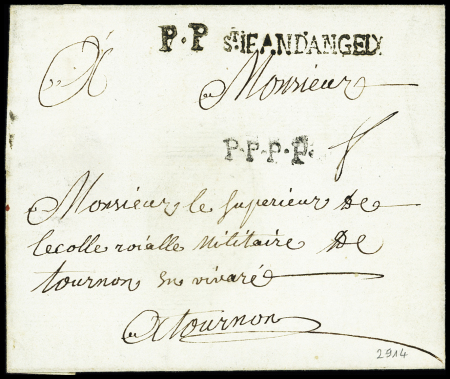 P·P STJEANDANGELY
A Monsieur
P·P·P·P·
Monsieur le superieur de
lecolle roialle militaire de
tournon en vivaré
A tournon
2914